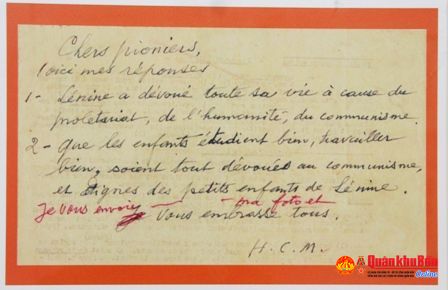 Chers pioniers,
Voici mes réponses
1- Lénine a dévoué toute sa vie à cause du
prolétariat, de l'humanité, du communisme.
2- Que les enfants étudient bien, travailler
bien, soient tout dévoués au communisme,
et dignes des petits enfants de Lénine.
Je vous envoie ma foto et
Vous embrasse tous.
H.C.M.
Quân khu Bốn
Online